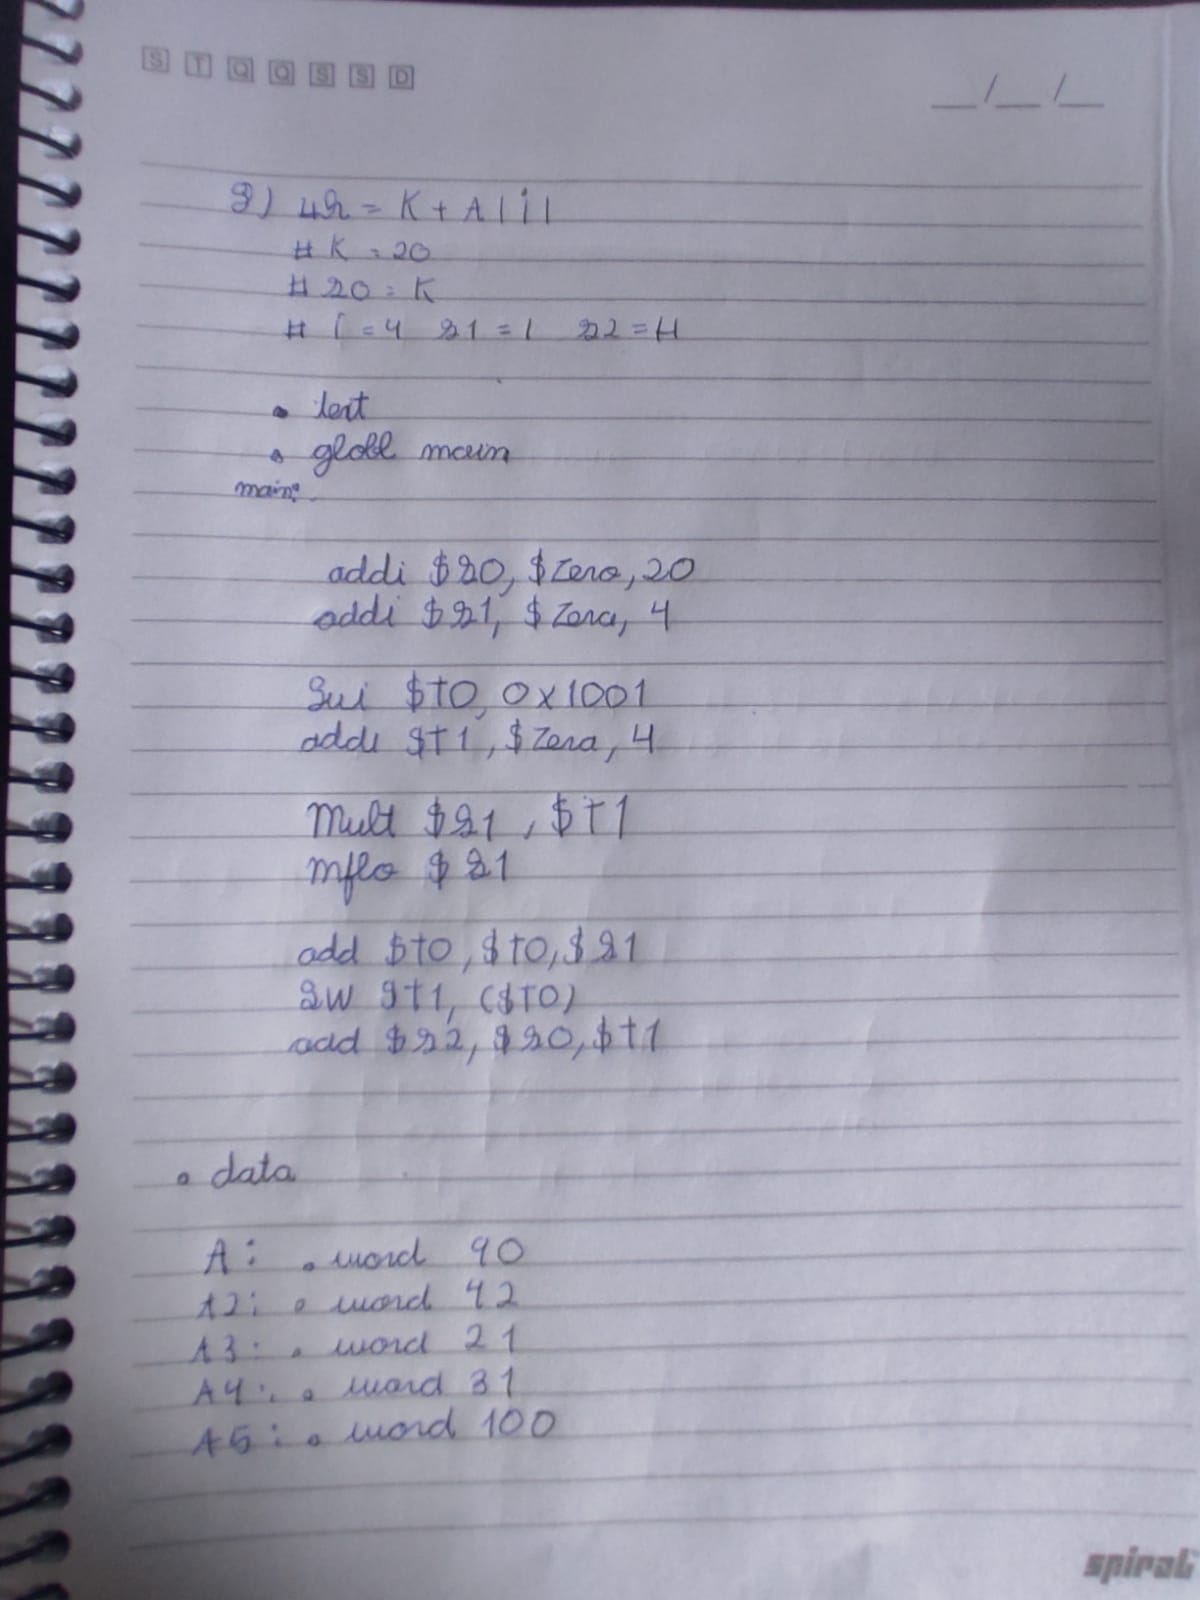 S T Q Q S S D
__/__/__
3) h = K + A|i|
# K = 20
# s0 = K
# i = 4 s1 = i s2 = H
. text
. globl main
main:
addi $s0, $zero, 20
addi $s1, $zero, 4
lui $t0, 0x1001
addi $t1, $zero, 4
mult $s1, $t1
mflo $s1
add $t0, $t0, $s1
lw $t1, ($t0)
add $s2, $s0, $t1
. data
A: . word 90
A2: . word 42
A3: . word 21
A4: . word 31
A5: . word 100
spiral